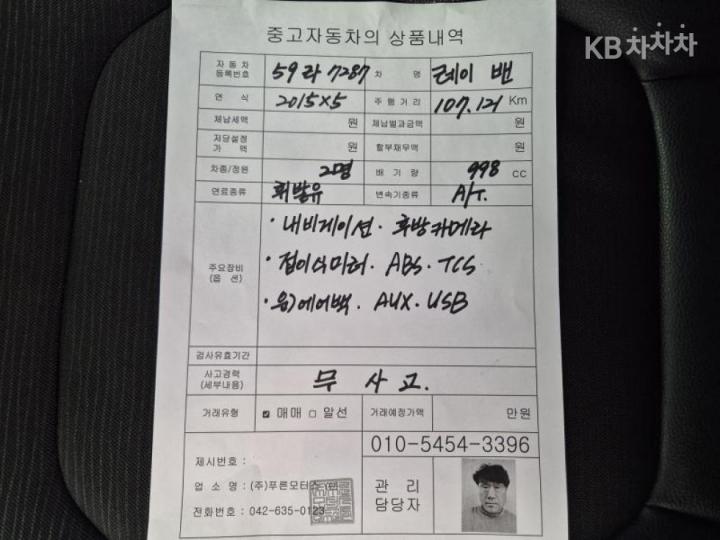 KB차차차
중고자동차의 상품내역
자동차 등록번호 59라7287 차명 레이 밴
연식 2015X5 주행거리 107.121 Km
체납세액 원 체납벌과금액 원
저당설정 가액 원 할부채무액 원
차종/정원 2명 배기량 998 CC
연료종류 휘발유 변속기종류 A/T.
주요장비 (옵션)
· 내비게이션 · 후방카메라
· 접이식미러 · ABS · TCS
· 운)에어백 · AUX · USB
검사유효기간
사고경력 (세부내용) 무 사 고.
거래유형 ☑ 매매 □ 알선 거래예정가액 만원
010-5454-3396
제시번호 :
업소명 : (주)푸른모터스
전화번호 : 042-635-0123
관리 담당자